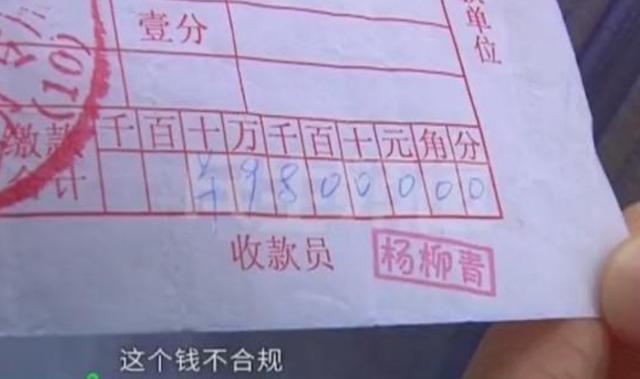 壹分
单位
(10)
缴款合计 千 百 十 万 千 百 十 元 角 分
¥9800000
收款员 杨柳青
这个钱不合规